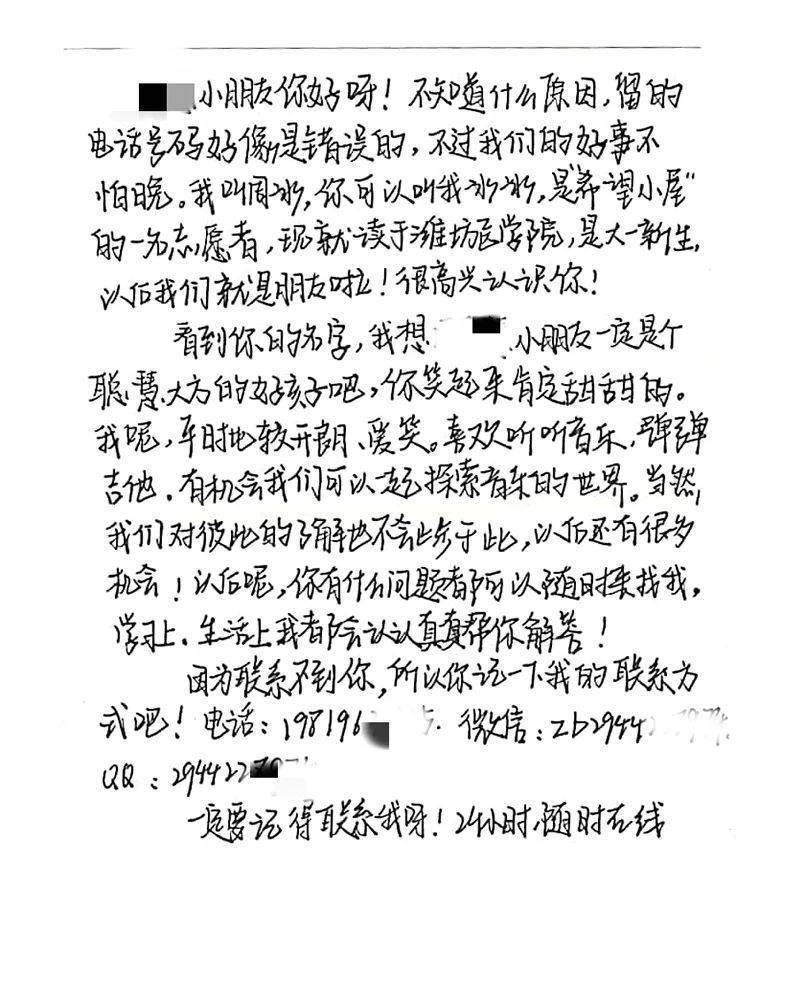 小朋友你好呀！不知道什么原因,留的
电话号码好像是错误的,不过我们的好事不
怕晚。我叫周冰,你可以叫我冰冰,是"希望小屋"
的一名志愿者,现就读于潍坊医学院,是大一新生,
以后我们就是朋友啦！很高兴认识你！
看到你的名字,我想 小朋友一定是个
聪慧大方的好孩子吧,你笑起来肯定甜甜的。
我呢,平时比较开朗、爱笑。喜欢听听音乐,弹弹
吉他.有机会我们可以一起探索音乐的世界。当然,
我们对彼此的了解也不会止步于此,以后还有很多
机会！以后呢,你有什么问题都可以随时来找我,
学习上.生活上我都会认认真真帮你解答！
因为联系不到你,所以你记一下我的联系方
式吧！电话:198196 微信:zb2944
QQ:294422
一定要记得联系我呀！24小时随时在线